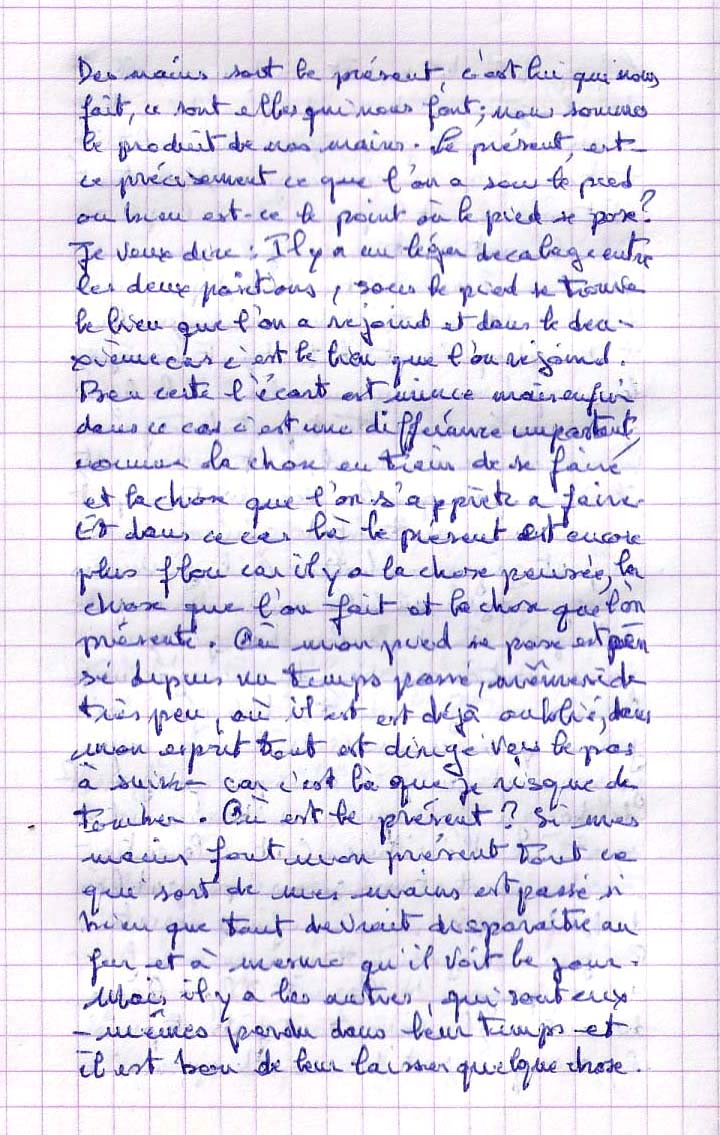 Des mains sort le présent, c'est lui qui nous
fait, ce sont elles qui nous font; nous sommes
le produit de nos mains. Le présent, est-
ce précisement ce que l'on a sous le pied
ou bien est-ce le point où le pied se pose?
Je veux dire: Il y a un léger decalage entre
les deux positions, sous le pied se trouve
le lieu que l'on a rejoind et dans le deu-
xième cas c'est le lieu que l'on rejoind.
Bien certe l'écart est mince mais enfin
dans ce cas c'est une différance importante,
comme la chose en train de se faire
et la chose que l'on s'apprête a faire.
Et dans ce cas là le présent est encore
plus flou car il y a la chose pensée, la
chose que l'on fait et la chose que l'on
présente. Où mon pied se pose est pen
sé depuis un temps passé, même si de
très peu, où il est est déjà oublié, dans
mon esprit tout est dirigé vers le pas
à suivre car c'est là que je risque de
tomber. Où est le présent? Si mes
mains font mon présent tout ce
qui sort de mes mains est passé si
bien que tout devrait disparaître au
fur et à mesure qu'il voit le jour.
Mais il y a les autres, qui sont eux
-mêmes perdu dans leur temps et
il est bon de leur laisser quelque chose.